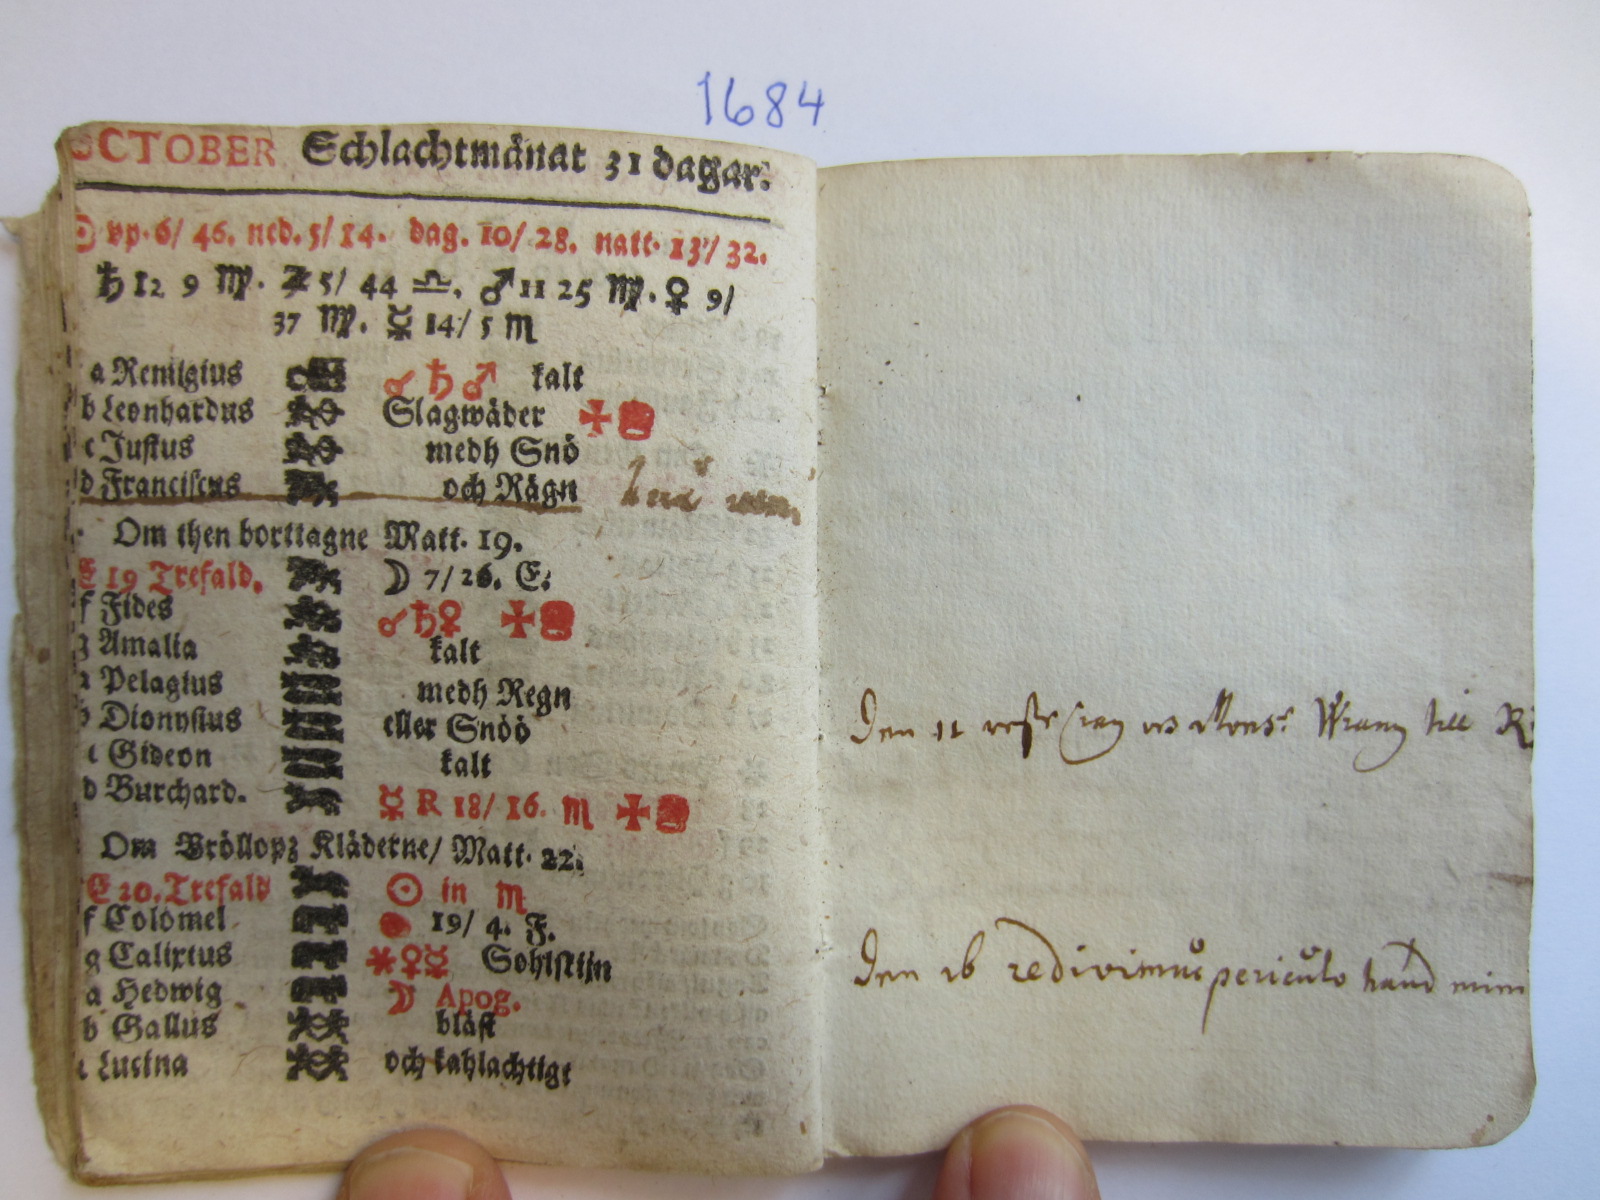 1684
OCTOBER Schlachtmånat 31 dagar.
☉ vp. 6/ 46. ned. 5/ 14. dag. 10/ 28. natt. 13/ 32.
♄ 12 9 ♍. ♃ 5/ 44 ♎. ♂ 11 25 ♍. ♀ 9/
37 ♍. ☿ 14/ 5 ♏
a Remigius ☌ ♄ ♂ kalt
b Leonhardus Slagwäder ✠
c Justus medh Snö
d Franciscus och Rägn
Om then borttagne Matt. 19.
E 19 Trefald. ☽ 7/ 26. E.
f Fides ☌ ♄ ♀ ✠
g Amalia kalt
a Pelagius medh Regn
b Dionysius eller Snöö
c Gideon kalt
d Burchard. ☿ R 18/ 16. ♏ ✠
Om Bröllopz Kläderne/ Matt. 22.
E 20. Trefald ☉ in ♏
f Colomel ● 19/ 4. F.
g Calixtus ⚹ ♀ ☿ Sohlstijn
a Hedwig ☽ Apog.
b Gallus bläst
c Lucina och kahlachtigt
Den 11 reste iag Mons. Wrang till
Den 16 redivimus periculo haud